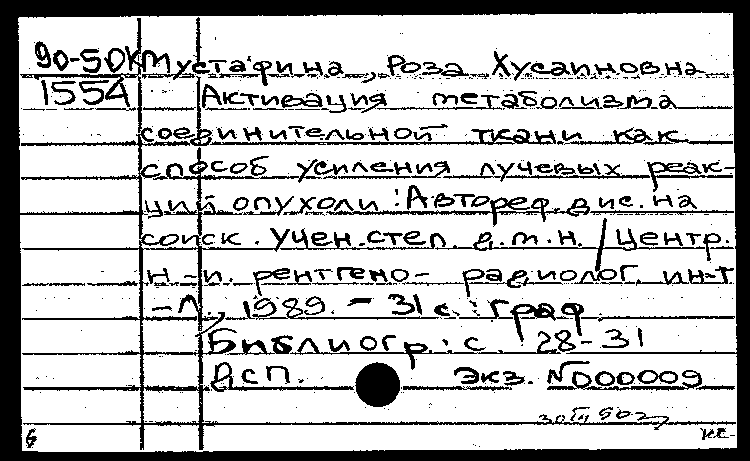 90-50К Мустафина, Роза Хусаиновна
1554 Активация метаболизма
соединительной ткани как
способ усиления лучевых реак-
ций опухоли : Автореф. дис. на
соиск. учен. степ. д.м.н. / Центр.
н.-и. рентгено- радиолог. ин-т
-Л., 1989. - 31 с. : граф.
Библиогр.: с. 28-31
ДСП. Экз. №000009